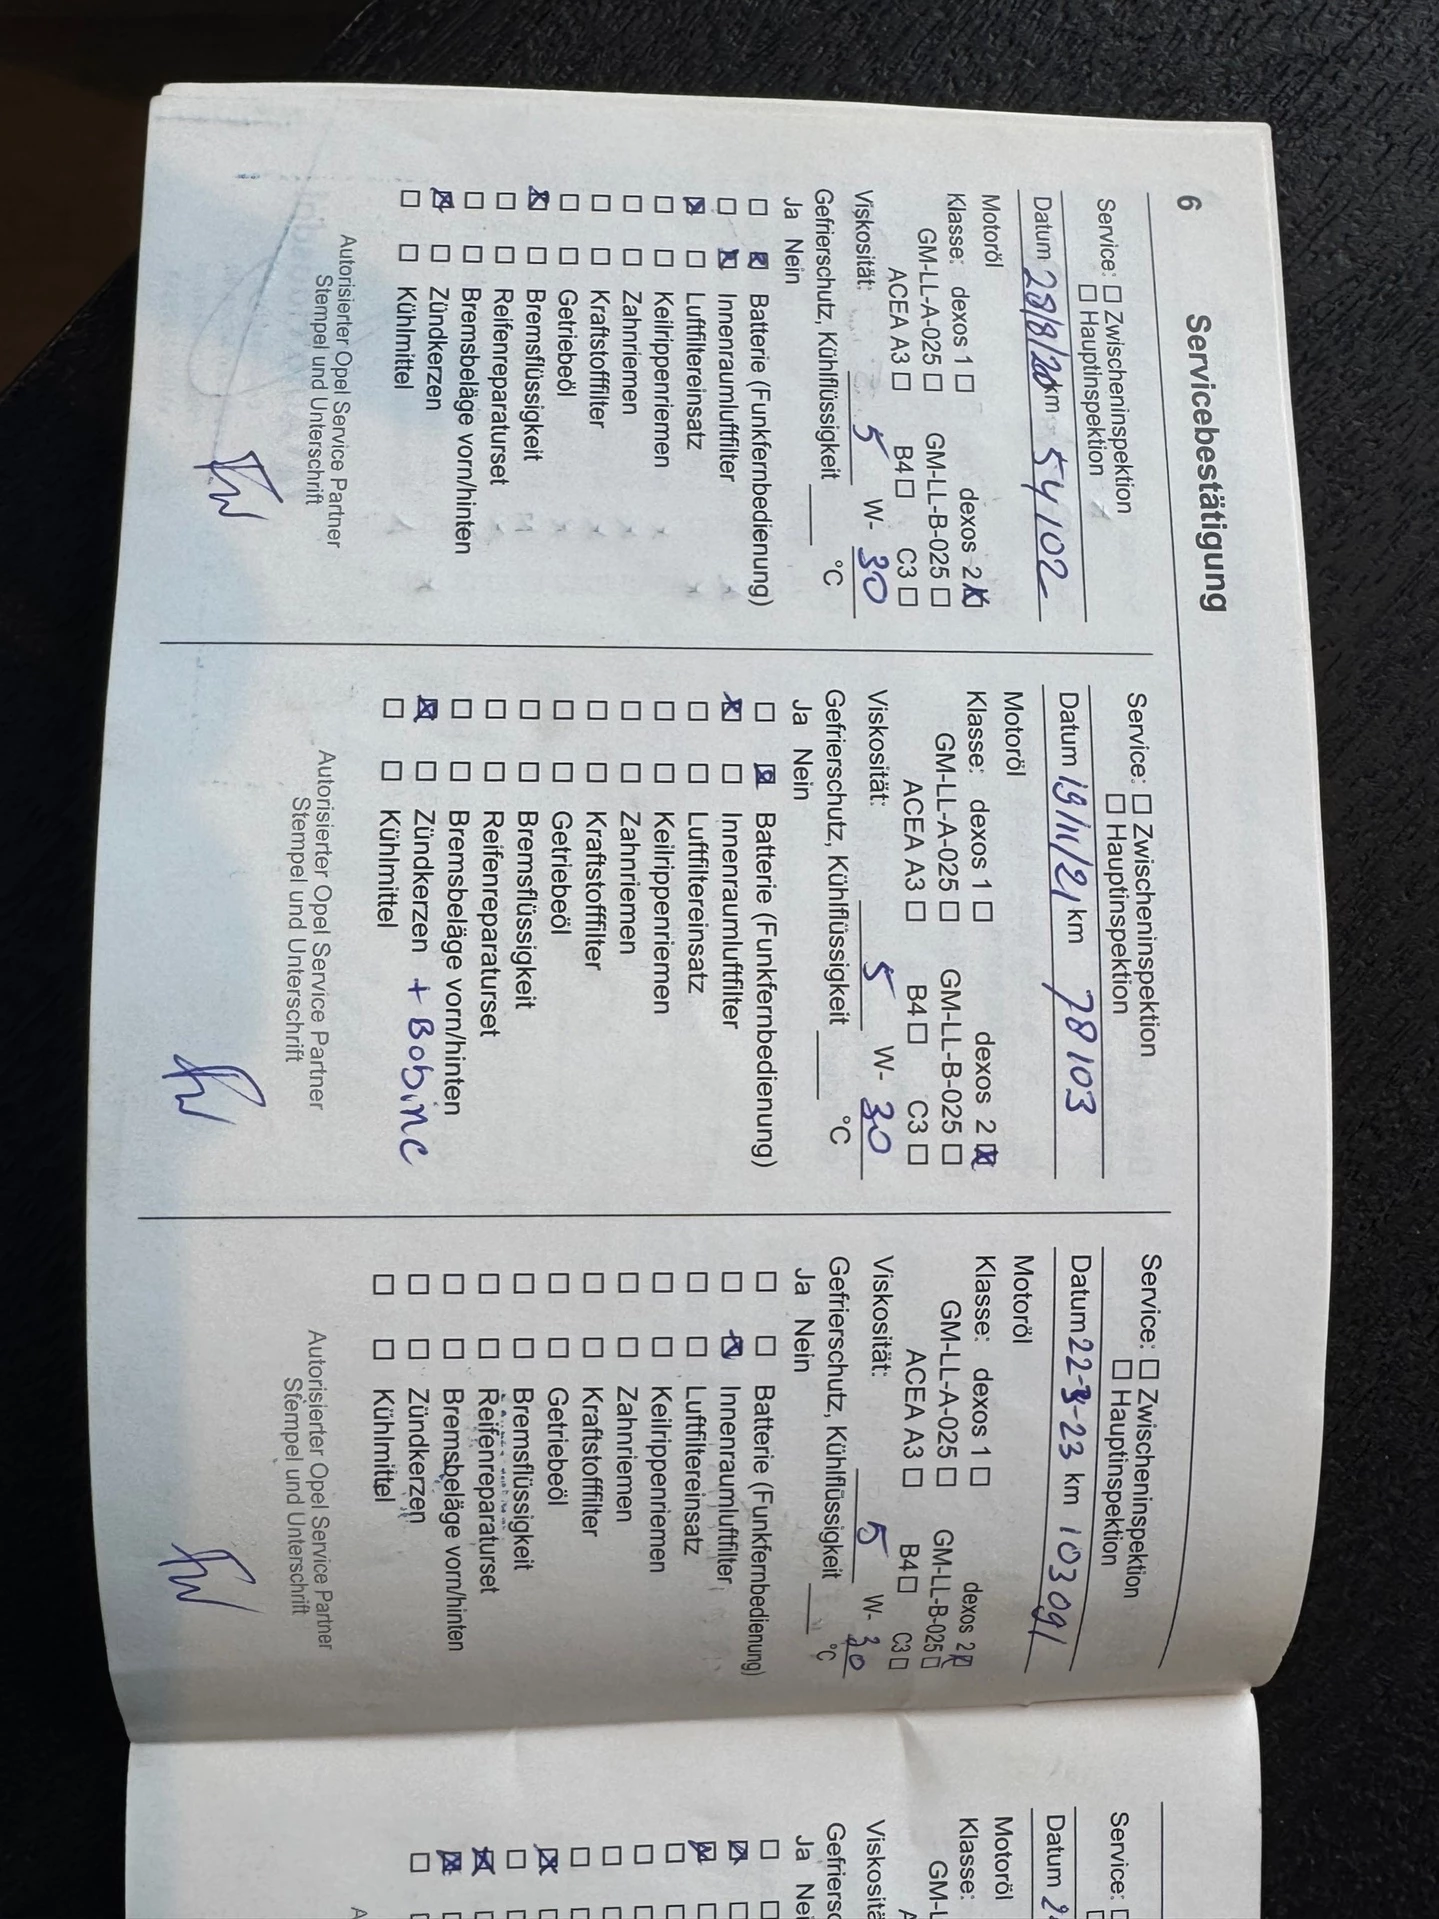 6 Servicebestätigung
Service: ☐ Zwischeninspektion
☐ Hauptinspektion
Datum 28/8/20 km 54102
Motoröl
Klasse: dexos 1 ☐ dexos 2 ☒
GM-LL-A-025 ☐ GM-LL-B-025 ☐
ACEA A3 ☐ B4 ☐ C3 ☐
Viskosität: 5 W- 30
Gefrierschutz, Kühlflüssigkeit ____ °C
Ja Nein
☐ ☒ Batterie (Funkfernbedienung)
☐ ☒ Innenraumluftfilter
☒ ☐ Luftfiltereinsatz
☐ ☐ Keilrippenriemen
☐ ☐ Zahnriemen
☐ ☐ Kraftstofffilter
☐ ☐ Getriebeöl
☒ ☐ Bremsflüssigkeit
☐ ☐ Reifenreparaturset
☐ ☐ Bremsbeläge vorn/hinten
☒ ☐ Zündkerzen
☐ ☐ Kühlmittel
Autorisierter Opel Service Partner
Stempel und Unterschrift
Service: ☐ Zwischeninspektion
☐ Hauptinspektion
Datum 19/11/21 km 78103
Motoröl
Klasse: dexos 1 ☐ dexos 2 ☒
GM-LL-A-025 ☐ GM-LL-B-025 ☐
ACEA A3 ☐ B4 ☐ C3 ☐
Viskosität: 5 W- 30
Gefrierschutz, Kühlflüssigkeit ____ °C
Ja Nein
☐ ☒ Batterie (Funkfernbedienung)
☒ ☐ Innenraumluftfilter
☐ ☐ Luftfiltereinsatz
☐ ☐ Keilrippenriemen
☐ ☐ Zahnriemen
☐ ☐ Kraftstofffilter
☐ ☐ Getriebeöl
☐ ☐ Bremsflüssigkeit
☐ ☐ Reifenreparaturset
☐ ☐ Bremsbeläge vorn/hinten
☒ ☐ Zündkerzen + Bobine
☐ ☐ Kühlmittel
Autorisierter Opel Service Partner
Stempel und Unterschrift
Service: ☐ Zwischeninspektion
☐ Hauptinspektion
Datum 22-3-23 km 103091
Motoröl
Klasse: dexos 1 ☐ dexos 2 ☒
GM-LL-A-025 ☐ GM-LL-B-025 ☐
ACEA A3 ☐ B4 ☐ C3 ☐
Viskosität: 5 W- 30
Gefrierschutz, Kühlflüssigkeit ____ °C
Ja Nein
☐ ☐ Batterie (Funkfernbedienung)
☐ ☒ Innenraumluftfilter
☐ ☐ Luftfiltereinsatz
☐ ☐ Keilrippenriemen
☐ ☐ Zahnriemen
☐ ☐ Kraftstofffilter
☐ ☐ Getriebeöl
☐ ☐ Bremsflüssigkeit
☐ ☐ Reifenreparaturset
☐ ☐ Bremsbeläge vorn/hinten
☐ ☐ Zündkerzen
☐ ☐ Kühlmittel
Autorisierter Opel Service Partner
Stempel und Unterschrift
Service: ☐
Datum 2
Motoröl
Klasse:
GM-L
A
Viskositä
Gefriersc
Ja Nei
A